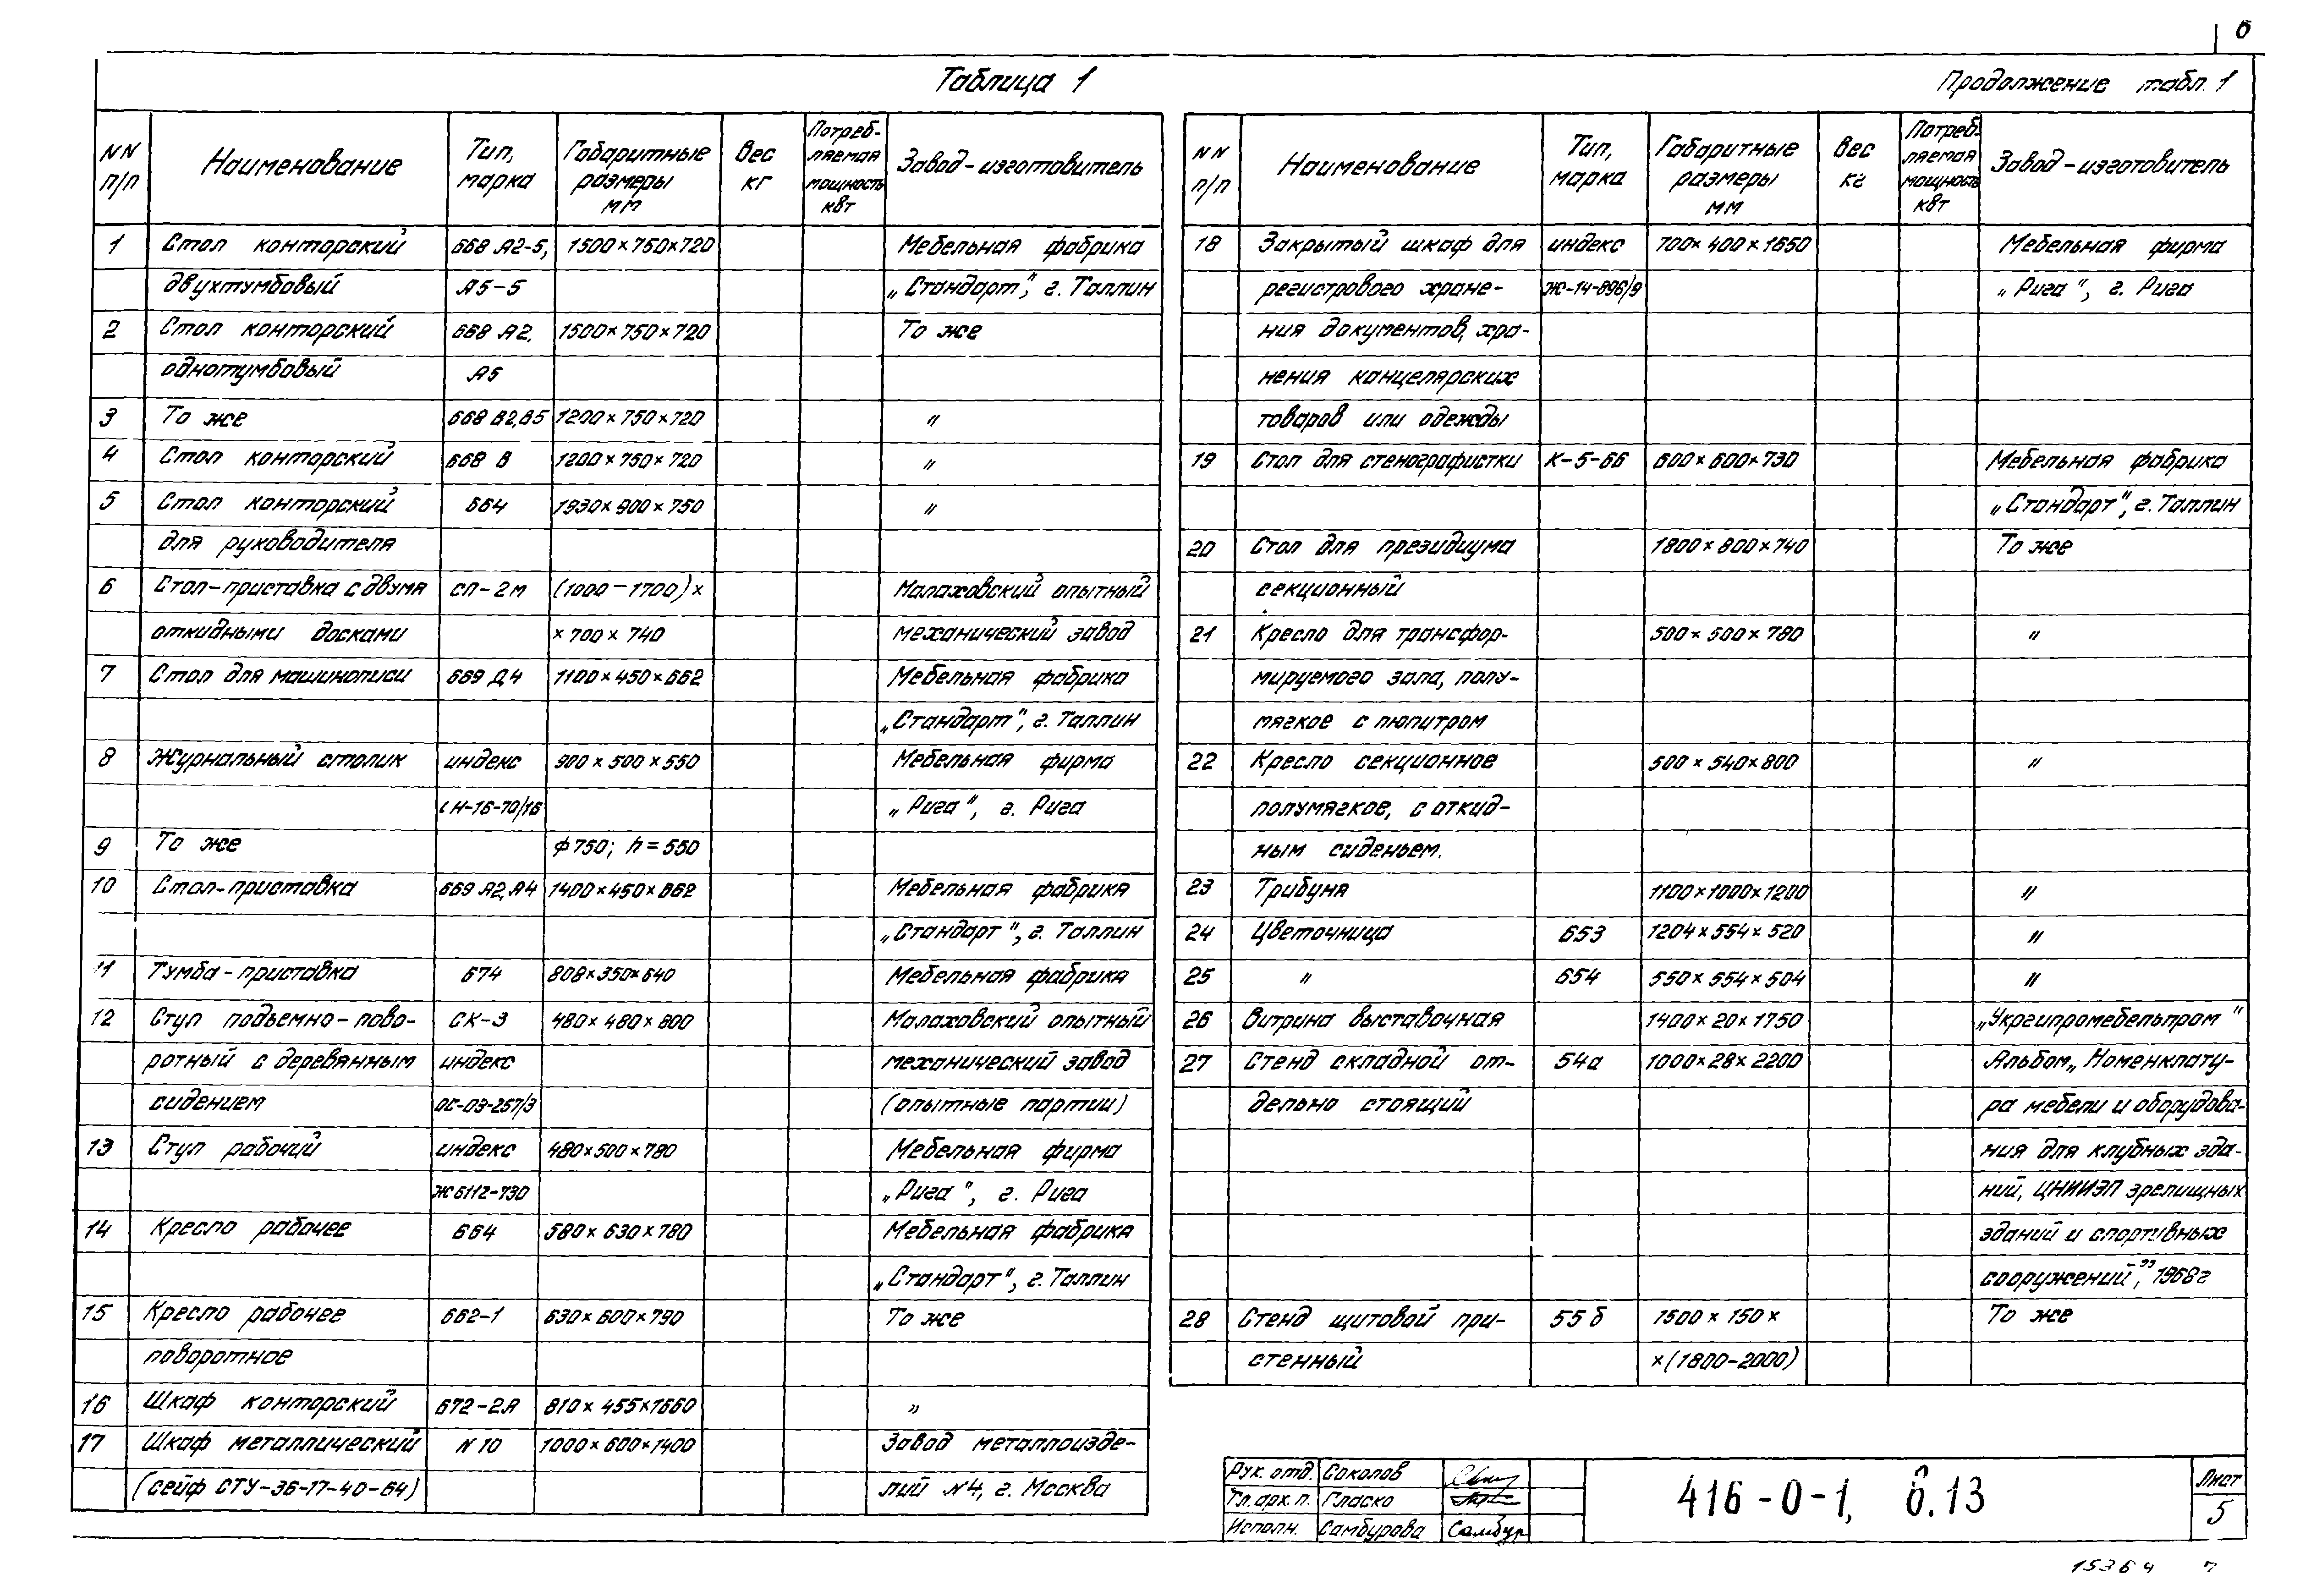 6
Таблица 1
NN п/п Наименование Тип, марка Габаритные размеры мм Вес кг Потреб-ляемая мощность квт Завод-изготовитель
1 Стол конторский 668 А2-5, 1500×750×720 Мебельная фабрика
двухтумбовый А5-5 „Стандарт", г. Таллин
2 Стол конторский 668 А2, 1500×750×720 То же
однотумбовый А5
3 То же 668 В2,В5 1200×750×720 "
4 Стол конторский 668 В 1200×750×720 "
5 Стол конторский 664 1930×900×750 "
для руководителя
6 Стол-приставка с двумя СП-2м (1000-1700)× Малаховский опытный
откидными досками ×700×740 механический завод
7 Стол для машинописи 669 Д4 1100×450×662 Мебельная фабрика
„Стандарт", г. Таллин
8 Журнальный столик индекс 900×500×550 Мебельная фирма
LH-16-70/16 „Рига", г. Рига
9 То же ф750; h=550
10 Стол-приставка 669 А2,А4 1400×450×662 Мебельная фабрика
„Стандарт", г. Таллин
11 Тумба-приставка 674 808×350×640 Мебельная фабрика
12 Стул подьемно-пово- СК-3 480×480×800 Малаховский опытный
ротный с деревянным индекс механический завод
сидением ОС-03-257/3 (опытные партии)
13 Стул рабочий индекс 480×500×780 Мебельная фирма
Ж6112-730 „Рига", г. Рига
14 Кресло рабочее 664 580×630×780 Мебельная фабрика
„Стандарт", г. Таллин
15 Кресло рабочее 662-1 630×600×790 То же
поворотное
16 Шкаф конторский 672-2А 810×455×1660 "
17 Шкаф металлический N 10 1000×600×1400 Завод металлоизде-
(сейф СТУ-36-17-40-64) лий N4, г. Москва
Продолжение табл. 1
NN п/п Наименование Тип, марка Габаритные размеры мм Вес кг Потреб-ляемая мощность квт Завод-изготовитель
18 Закрытый шкаф для индекс 700×400×1650 Мебельная фирма
регистрового хране- Ж-14-896/9 „Рига", г. Рига
ния документов, хра-
нения канцелярских
товаров или одежды
19 Стол для стенографистки К-5-66 600×600×730 Мебельная фабрика
„Стандарт", г. Таллин
20 Стол для президиума 1800×800×740 То же
секционный
21 Кресло для трансфор- 500×500×780 "
мируемого зала, полу-
мягкое с пюпитром
22 Кресло секционное 500×540×800 "
полумягкое, с откид-
ным сиденьем.
23 Трибуна 1100×1000×1200 "
24 Цветочница 653 1204×554×520 "
25 " 654 550×554×504 "
26 Витрина выставочная 1400×20×1750 „Укргипромебельпром"
27 Стенд складной от- 54а 1000×28×2200 Альбом „Номенклату-
дельно стоящий ра мебели и оборудова-
ния для клубных зда-
ний, ЦНИИЭП зрелищных
зданий и спортивных
сооружений", 1968г
28 Стенд щитовой при- 55б 1500×150× То же
стенный ×(1800-2000)
Рук. отд. Соколов
Гл. арх. п. Гласко
Исполн. Самбурова Самбур
416-0-1, в.13
Лист
5
15364 7